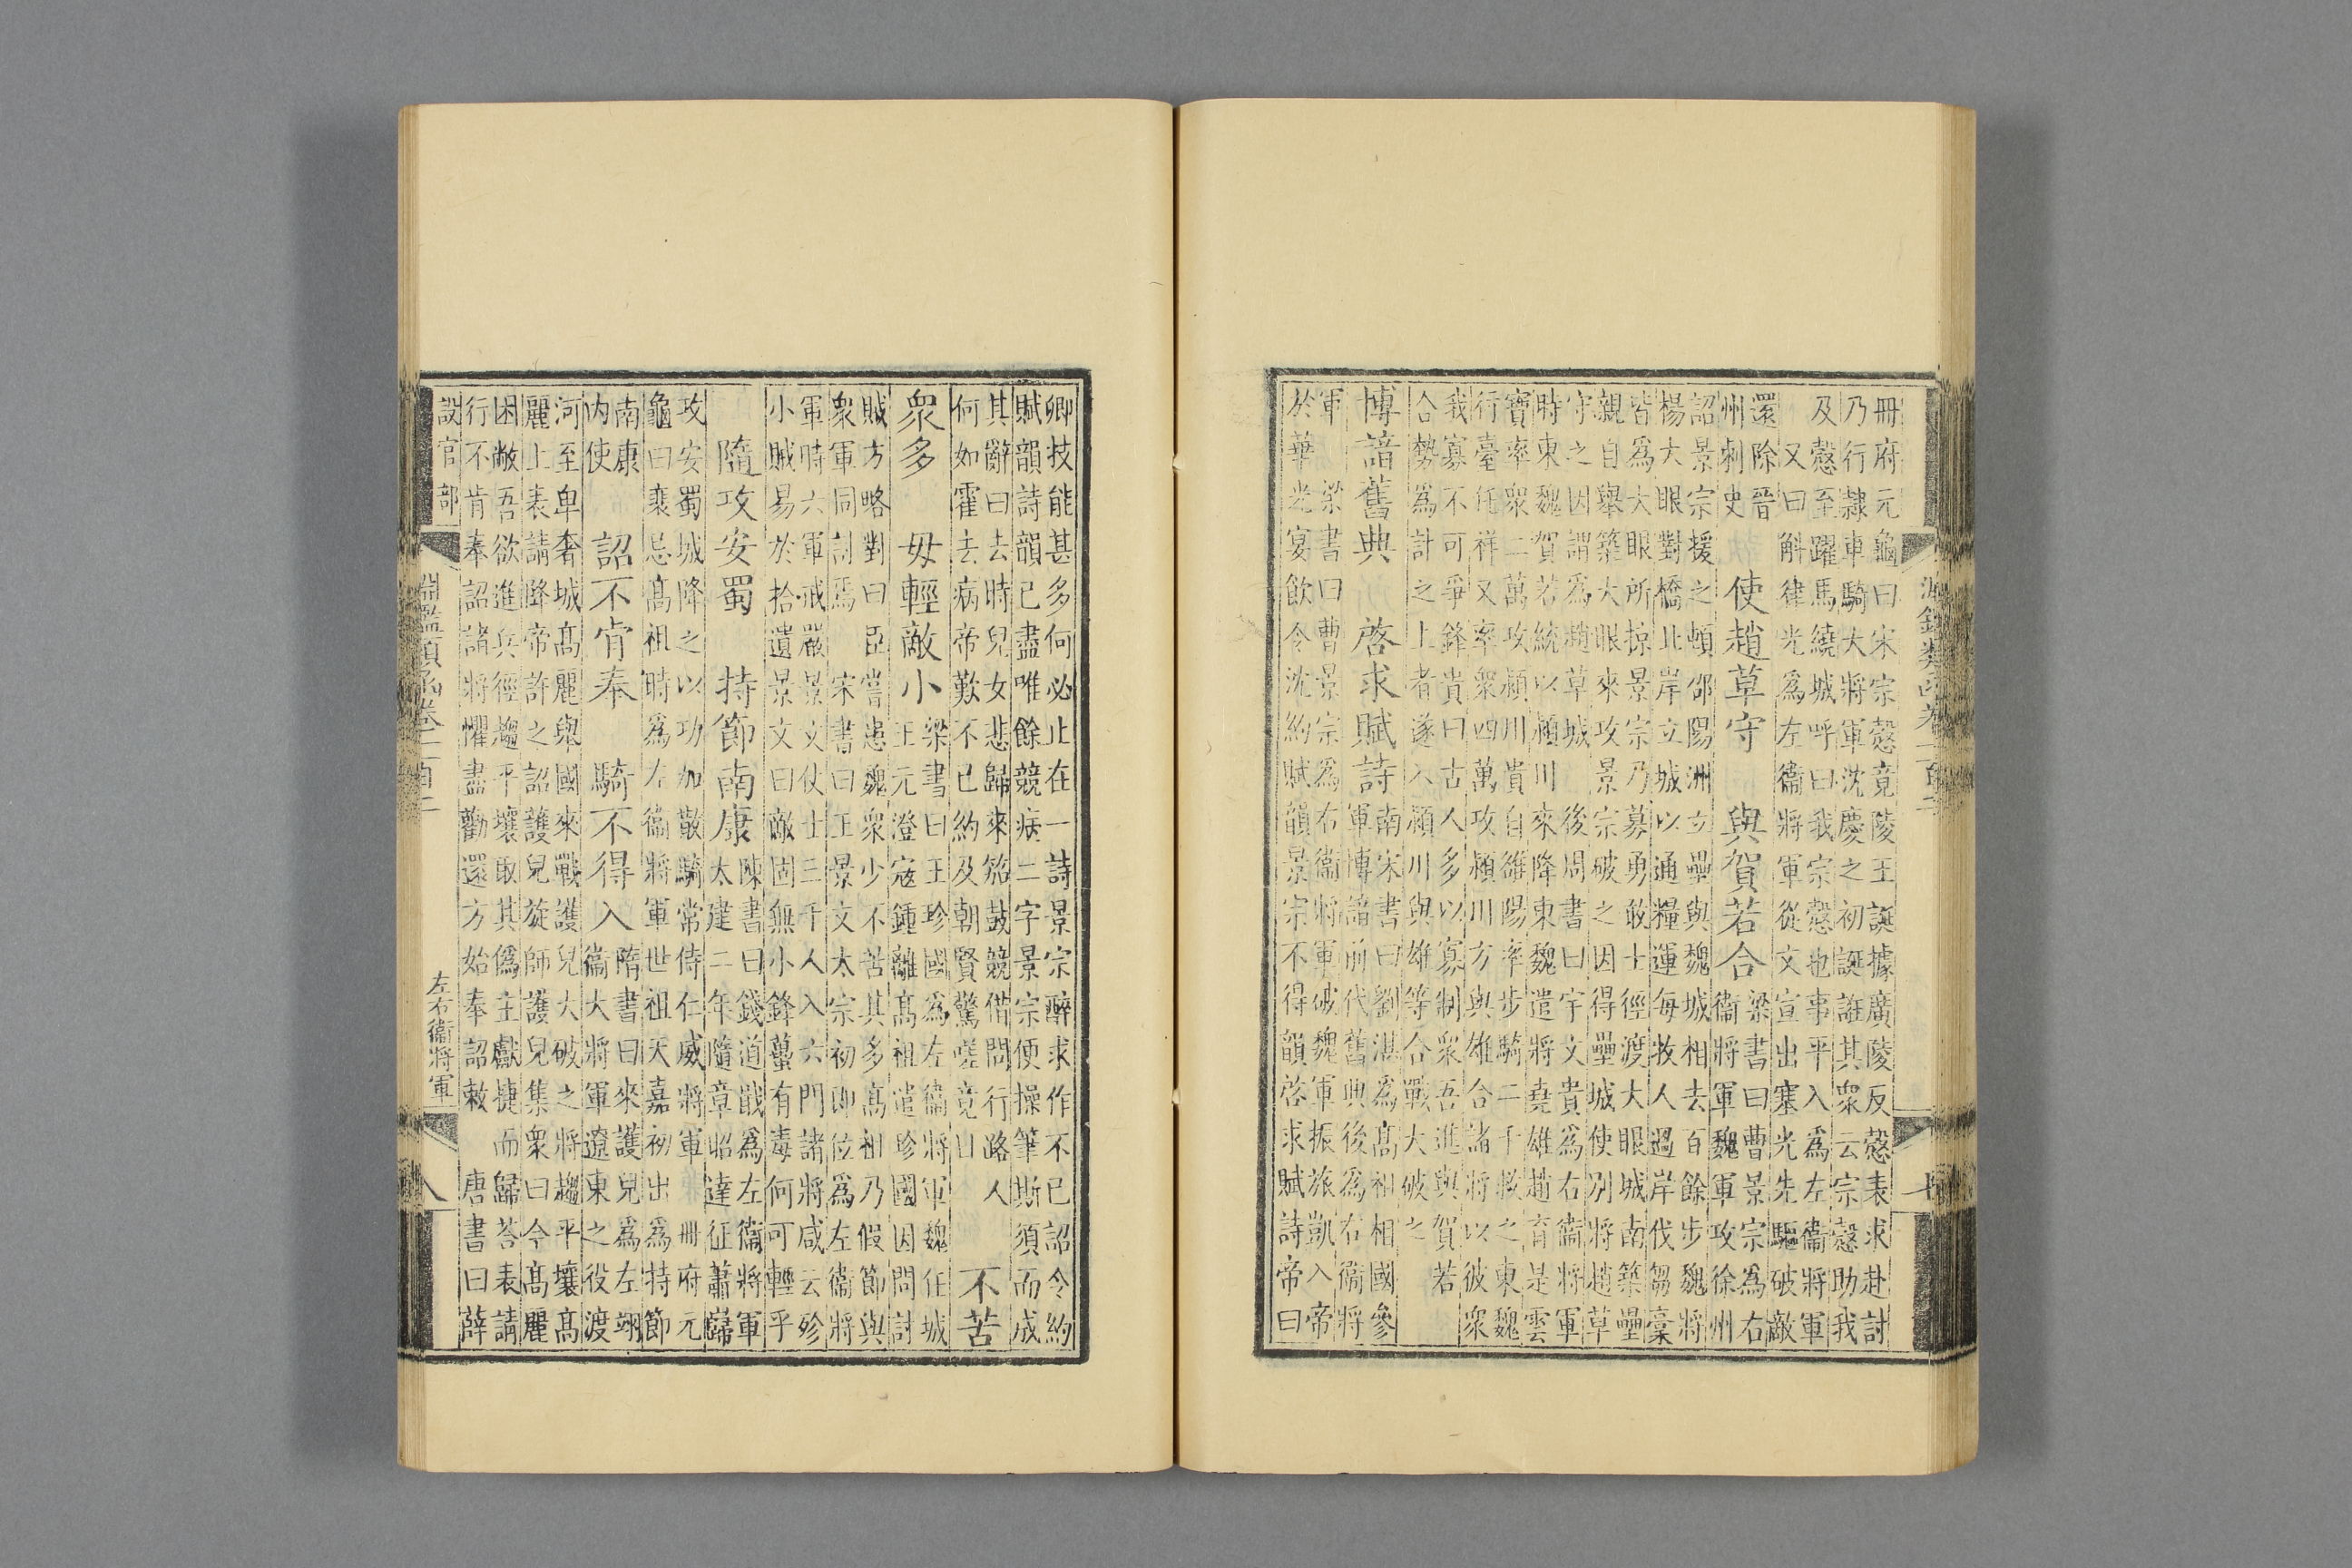 冊府元龜曰宋宗愨竟陵王誕據廣陵反愨表求赴討
乃行隷車騎大將軍沈慶之初誕誑其衆云宗愨助我
及愨至躍馬繞城呼曰我宗愨也事平入為左衞將軍
又曰斛律光為左衞將軍從文宣出塞光先驅破敵
還除晉
州刺史
使趙草守 與賀若合
梁書曰曹景宗為右
衞將軍魏軍攻徐州
詔景宗援之頓邵陽洲立壘與魏城相去百餘步魏將
楊大眼對橋北岸立城以通糧運每牧人過岸伐芻藁
皆為大眼所掠景宗乃募勇敢士徑渡大眼城南築壘
親自舉築大眼來攻景宗破之因得壘城使別將趙草
守之因謂為趙草城 後周書曰宇文貴為右衞將軍
時東魏賀若統以潁川來降東魏遣將堯雄趙育是雲
寶率衆二萬攻潁川貴自雒陽率步騎二千救之東魏
行臺任祥又率衆四萬攻潁川方與雄合諸將以彼衆
我寡不可爭鋒貴曰古人多以寡制衆吾進與賀若
合勢為計之上者遂入潁川與雄等合戰大破之
博諳舊典 啓求賦詩
南宋書曰劉湛為高祖相國參
軍博諳前代舊典後為右衞將
軍 梁書曰曹景宗為右衞將軍破魏軍振旅凱入帝
於華光宴飲令沈約賦韻景宗不得韻啓求賦詩帝曰
卿技能甚多何必止在一詩景宗醉求作不已詔令約
賦韻詩韻已盡唯餘競病二字景宗便操筆斯須而成
其辭曰去時兒女悲歸來笳鼓競借問行路人
何如霍去病帝歎不已約及朝賢驚嗟竟日
不苦
衆多 毋輕敵小
梁書曰王珍國為左衞將軍魏任城
王元澄寇鍾離高祖遣珍國因問討
賊方略對曰臣嘗患魏衆少不苦其多高祖乃假節與
衆軍同討焉 宋書曰王景文太宗初即位為左衞將
軍時六軍戒嚴景文仗士三千人入六門諸將咸云殄
小賊易於拾遺景文曰敵固無小鋒蠆有毒何可輕乎
隨攻安蜀 持節南康
陳書曰錢道戢為左衞將軍
太建二年隨章昭達征蕭巋
攻安蜀城降之以功加散騎常侍仁威將軍 冊府元
龜曰裴忌高祖時為左衞將軍世祖天嘉初出為持節
南康
内使
詔不肯奉 騎不得入
隋書曰來護兒為左翊
衞大將軍遼東之役渡
河至卑奢城高麗舉國來戰護兒大破之將趨平壤高
麗上表請降帝許之詔護兒旋師護兒集衆曰今高麗
困敝吾欲進兵徑趨平壤取其偽主獻捷而歸荅表請
行不肯奉詔諸將懼盡勸還方始奉詔敕 唐書曰薛
設官部 淵鑑類函卷一百二 左右衞將軍 八